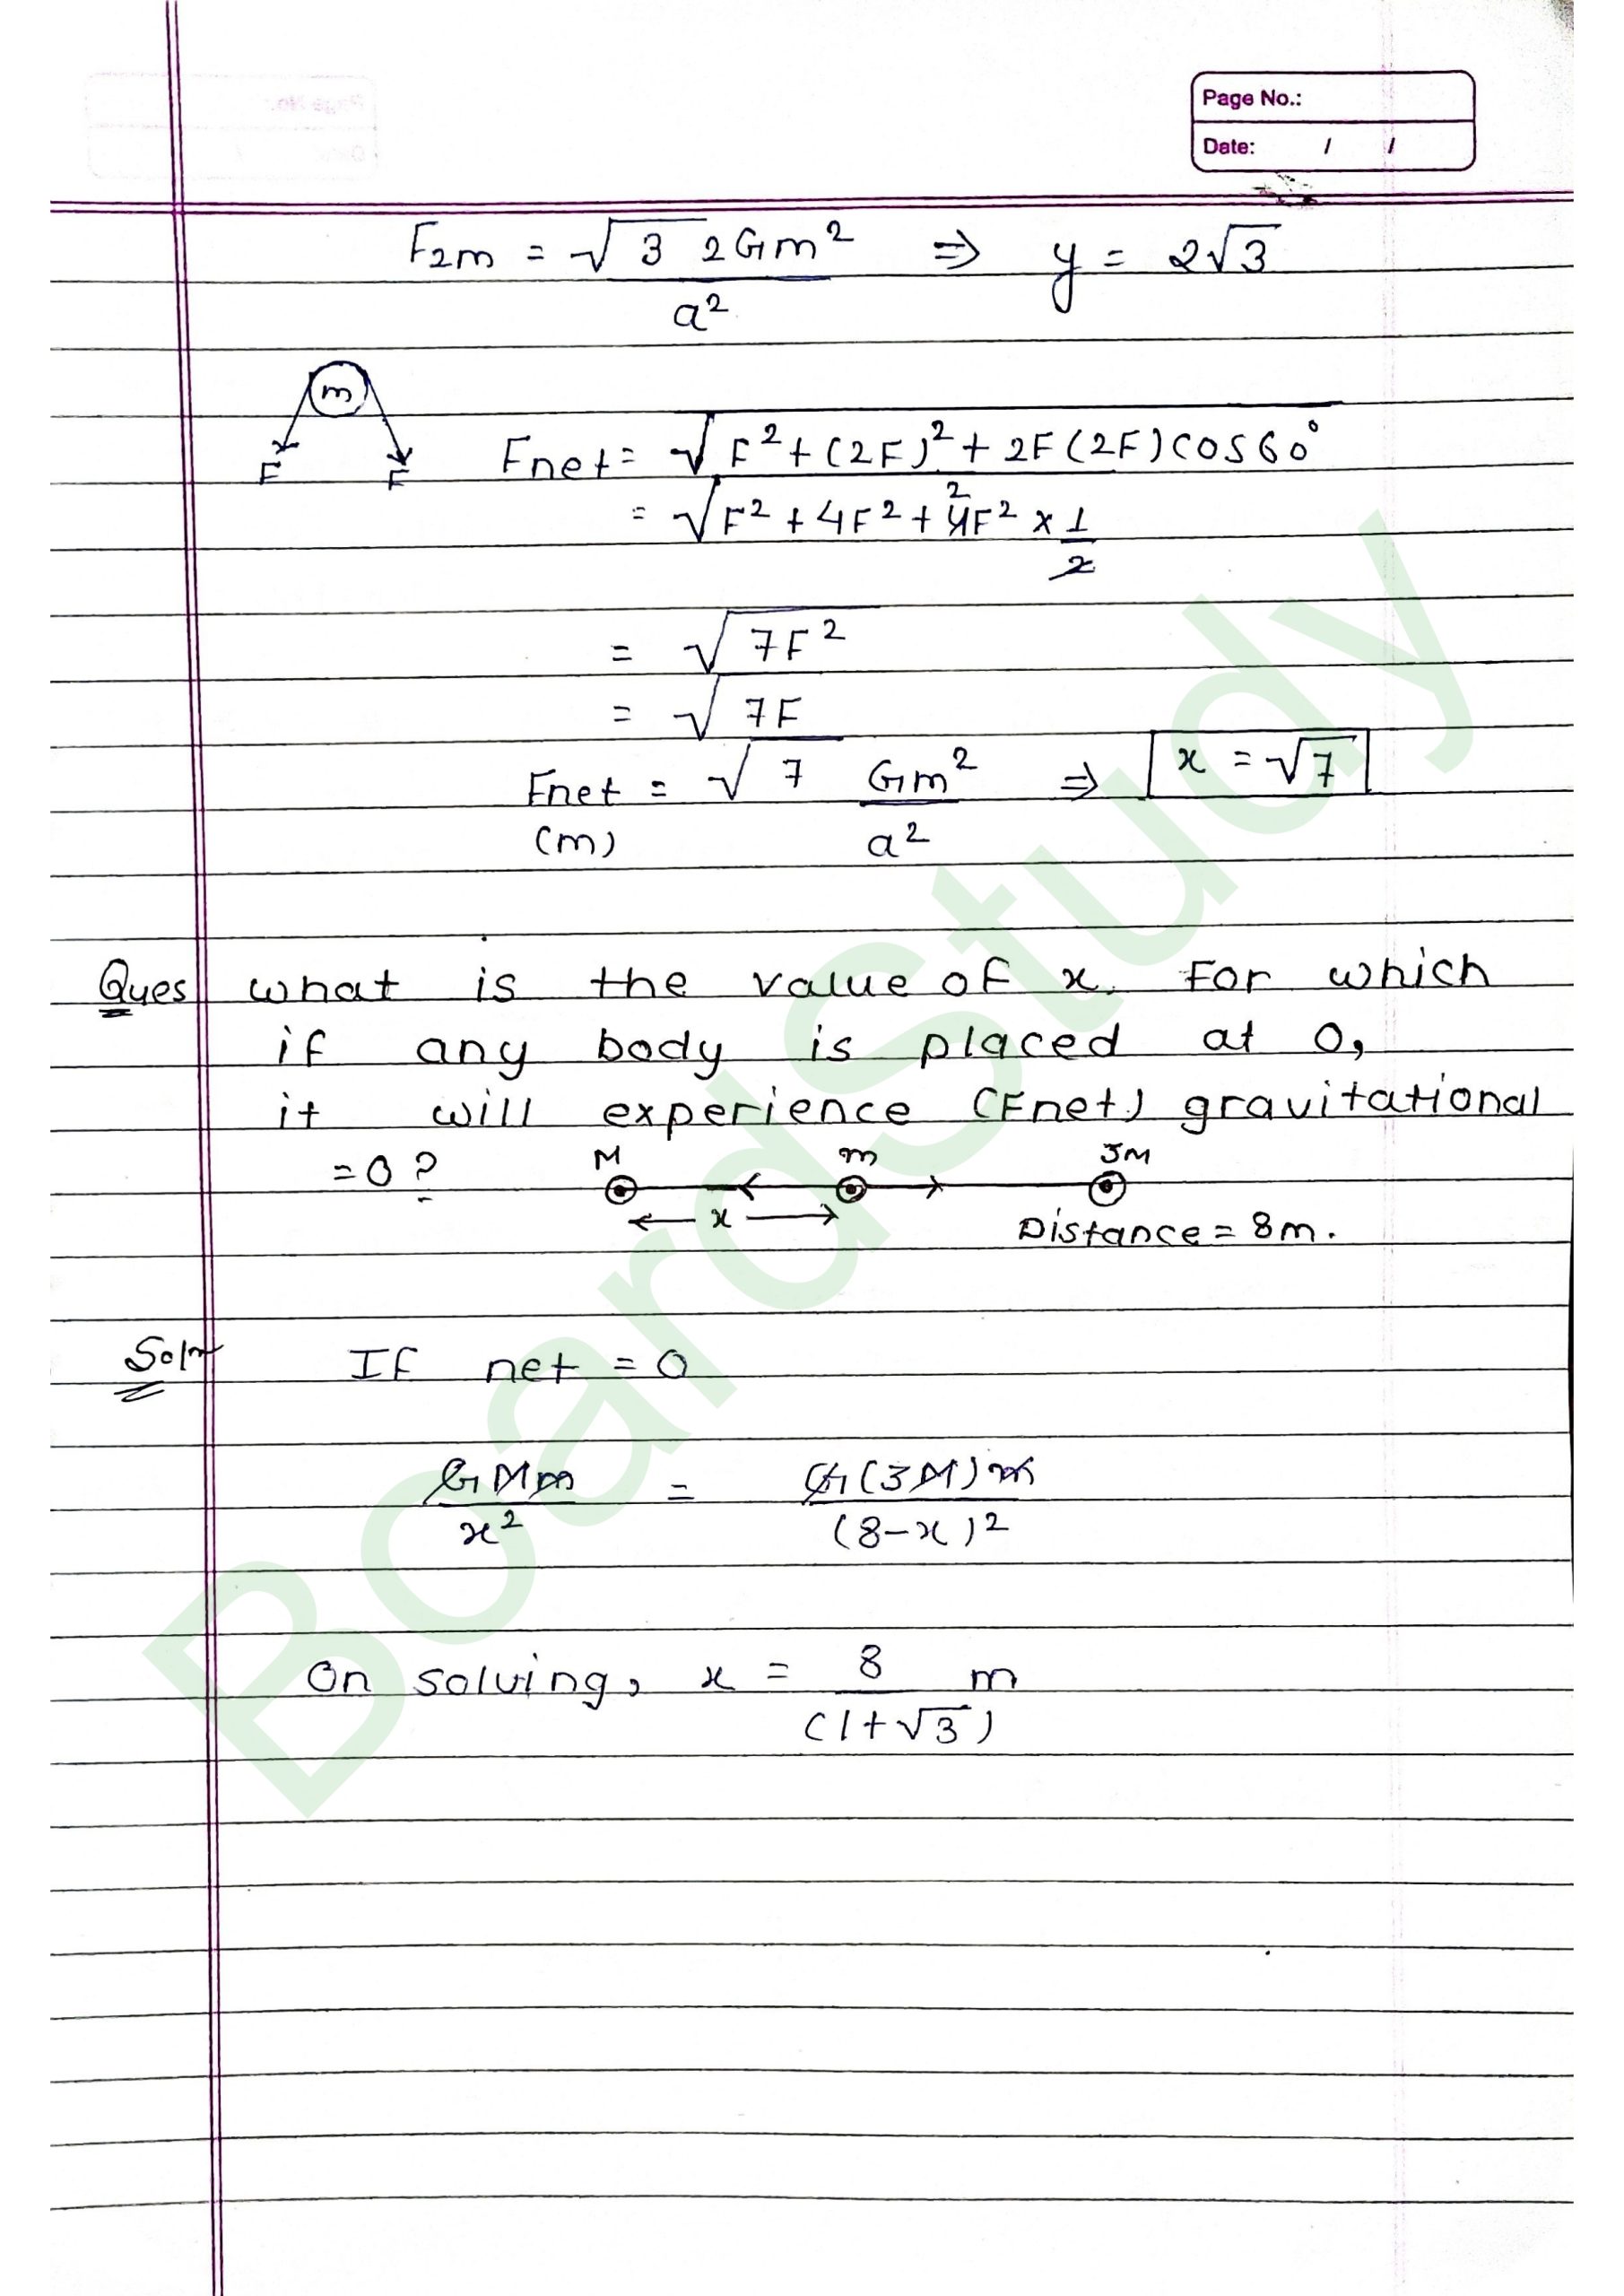 Page No.:
Date: / /
F2m = √3 2Gm² / a² ⇒ y = 2√3
m
F F
Fnet = √F² + (2F)² + 2F(2F)cos60°
= √F² + 4F² + 4F² 2 × 1/2
= √7F²
= √7F
Fnet (m) = √7 Gm² / a² ⇒ x = √7
Ques what is the value of x. For which
if any body is placed at 0,
it will experience (Fnet) gravitational
= 0 ?
M m 3M
x
Distance = 8m.
Soln If net = 0
GMm / x² = G(3M)m / (8-x)²
On solving, x = 8 / (1+√3) m
BoardStudy